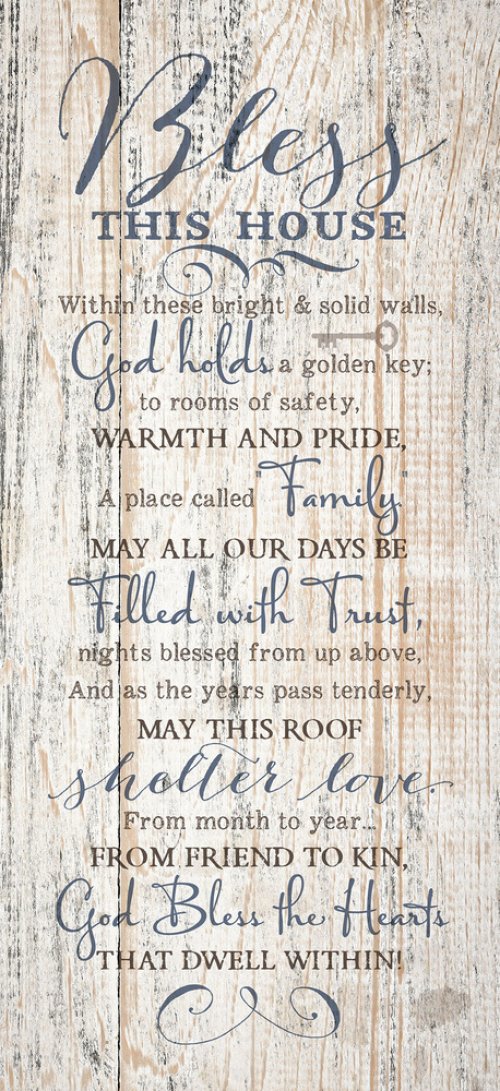 Bless
THIS HOUSE
Within these bright & solid walls,
God holds a golden key;
to rooms of safety,
WARMTH AND PRIDE,
A place called "Family."
MAY ALL OUR DAYS BE
Filled with Trust,
nights blessed from up above,
And as the years pass tenderly,
MAY THIS ROOF
shelter love.
From month to year...
FROM FRIEND TO KIN,
God Bless the Hearts
THAT DWELL WITHIN!